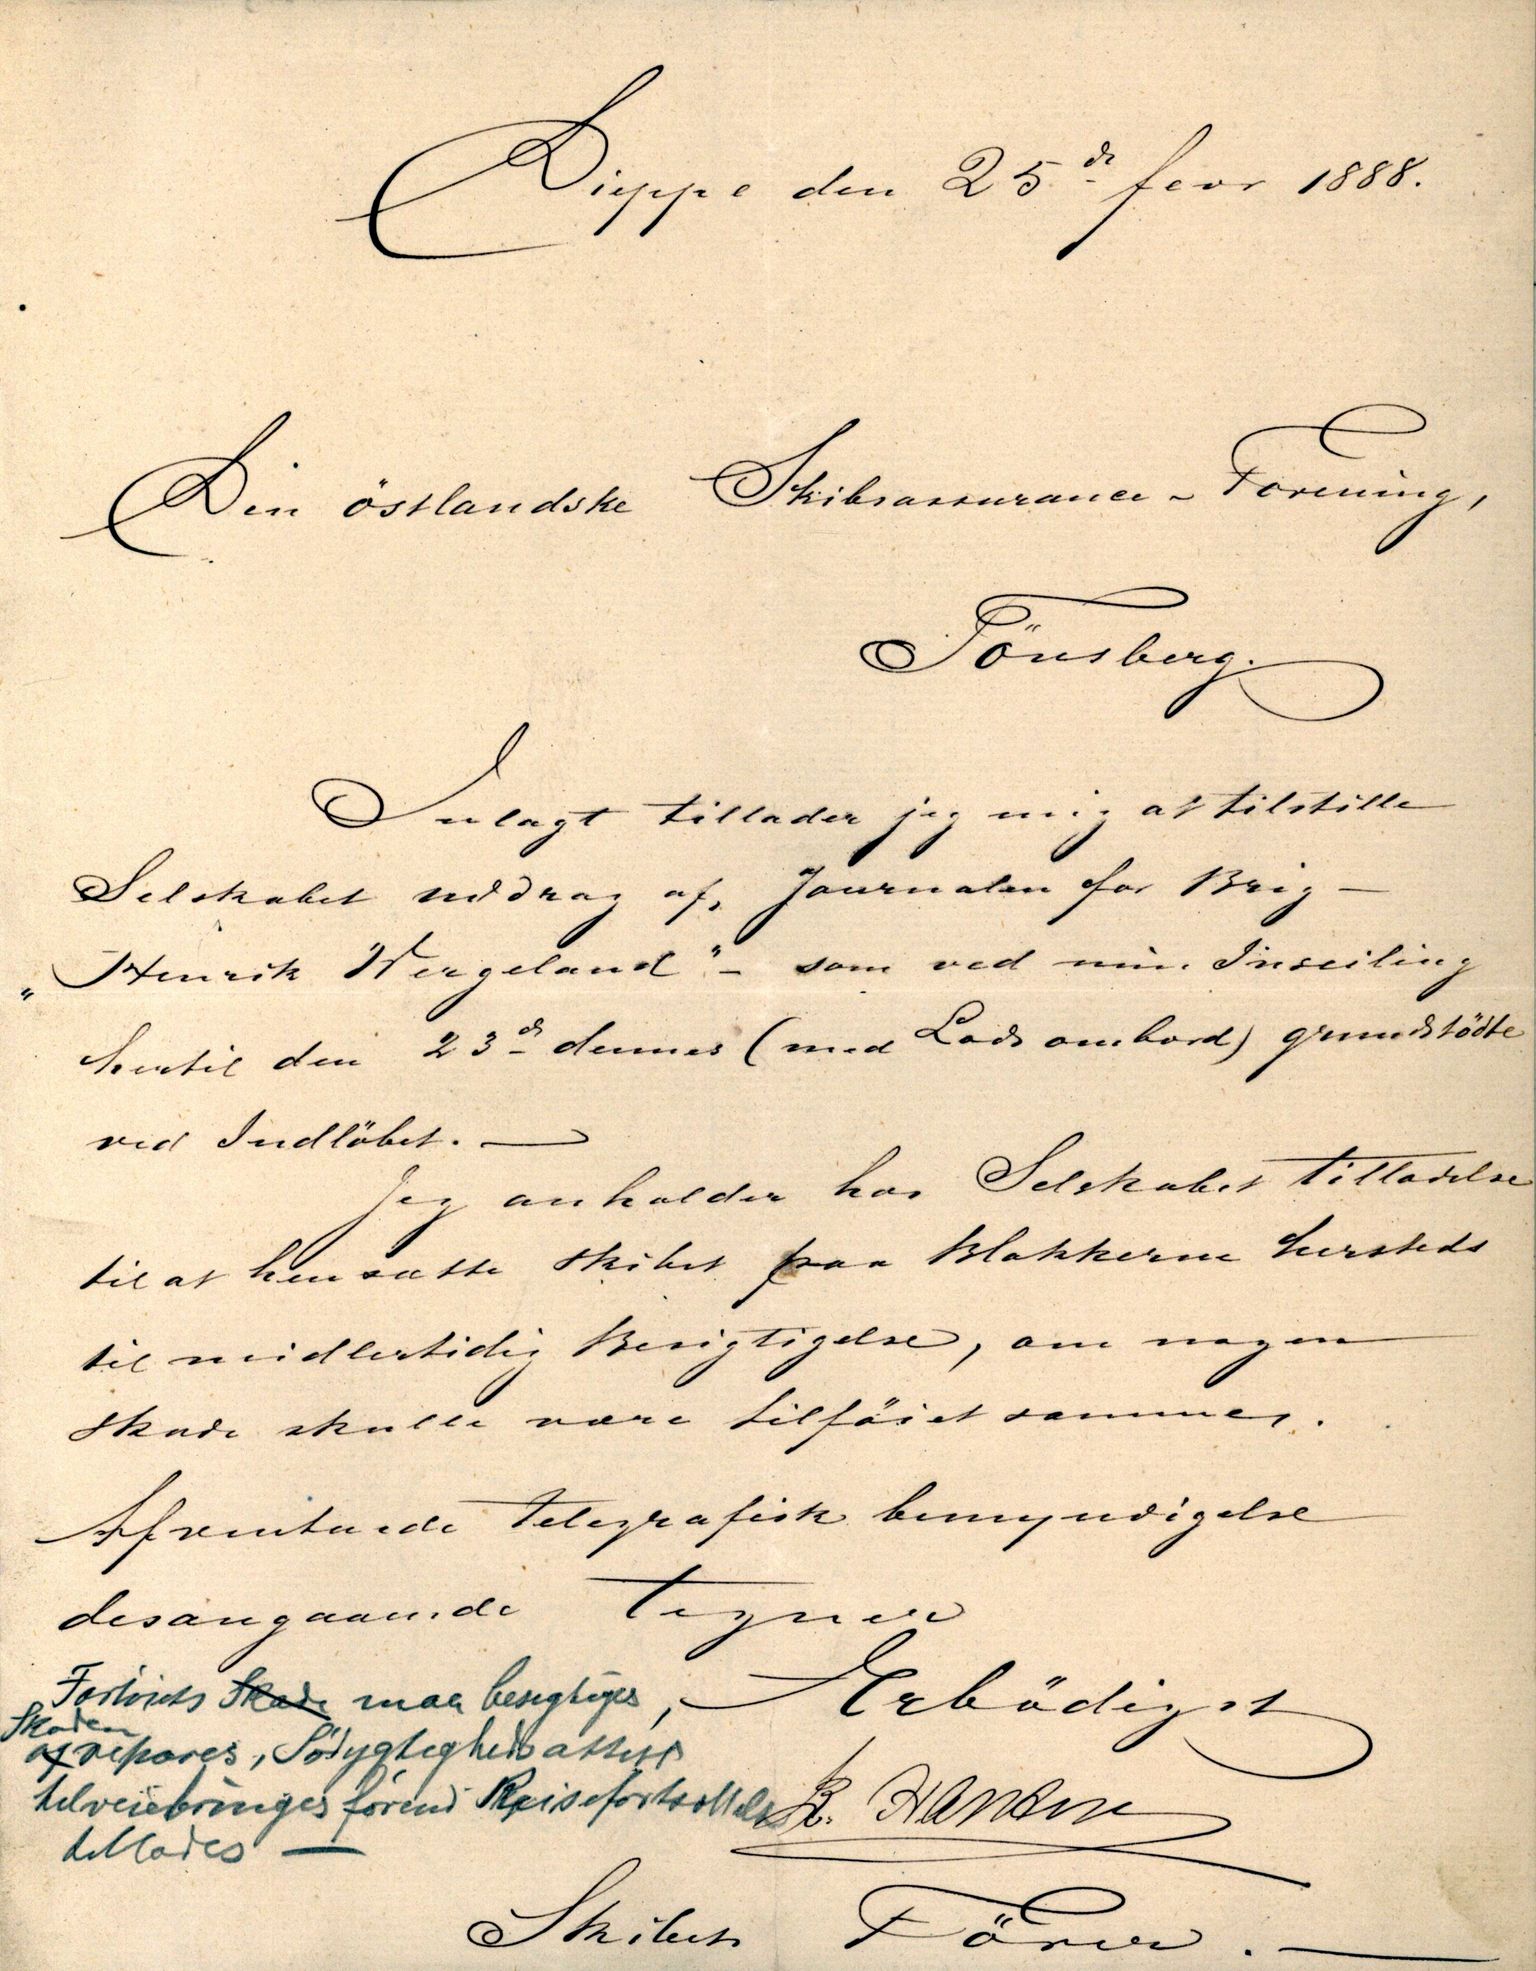 Dieppe den 25de febr 1888.
Den östlandske Skibsassurance-Forening,
Tönsberg.
Inlagt tillader jeg mig at tilstille
Selskabet uddrag af, Journalen for Brig –
„Henrik Wergeland" – som ved min Inseiling
hertil den 23de dennes (med Lods ombord) grundstödte
ved Indlöbet. —
Jeg anholder hos Selskabet tilladelse
til at hensætte Skibet paa Blakkerne hersteds
til midlertidig Besigtigelse, om nogen
skade skulle være tilföiet samme.
Afventende telegrafisk bemyndigelse
desangaaende tegner
Erbödigst
Hansen
Skibets Förer. —
Fartöiets Skade maa besigtiges,
Skaden
af repares, Södygtigheds attest
tilveiebringes förend Reisefortsættelse
tillades —